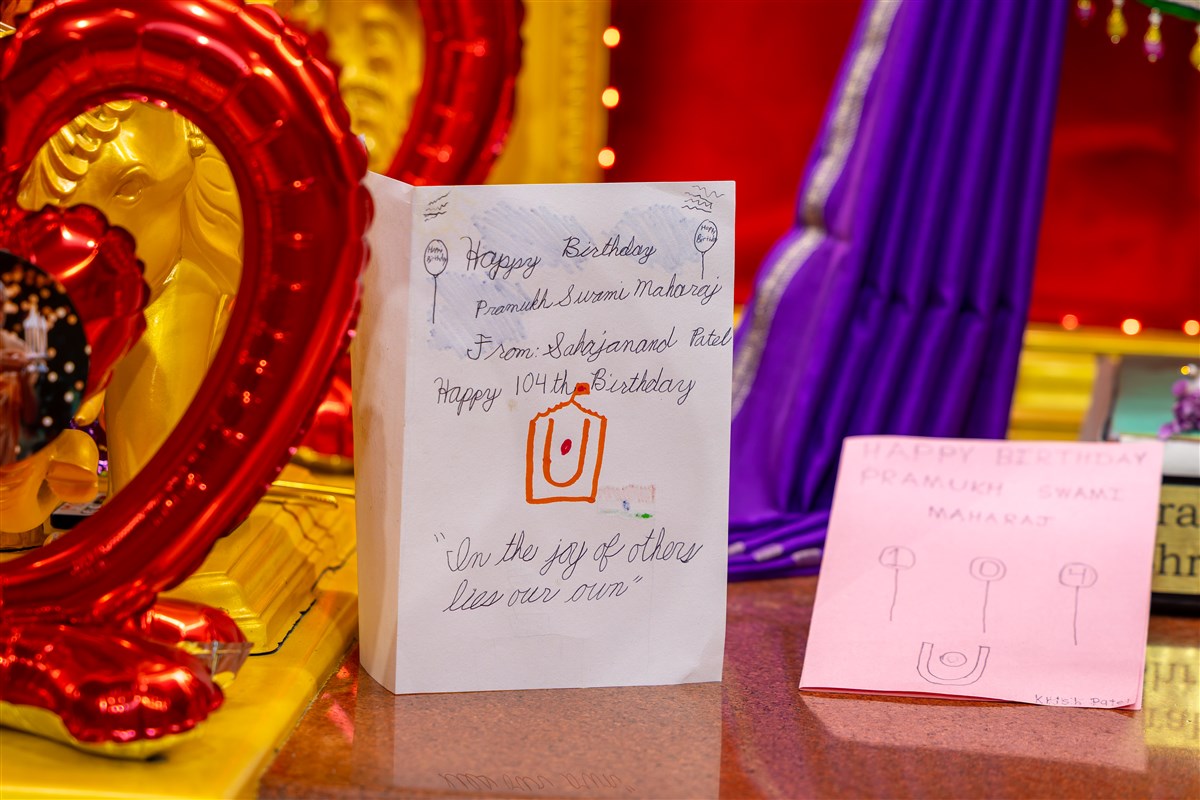 Happy Birthday
Happy Birthday
Happy Birthday
Pramukh Swami Maharaj
From: Sahajanand Patel
Happy 104th Birthday
"In the joy of others
lies our own"
HAPPY BIRTHDAY
PRAMUKH SWAMI
MAHARAJ
1 0 4
Krish Patel
ra
hr